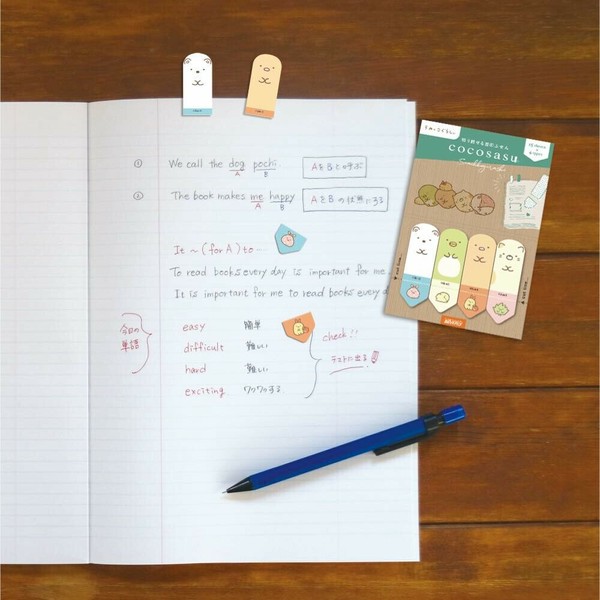 ① We call the dog pochi AをBと呼ぶ
A B
② The book makes me happy AをBの状態にする
A B
It ~ (for A) to…
To read books every day is important for me.
It is important for me to read books every d
今日の単語
easy 簡単
difficult 難しい
hard 難しい
exciting ワクワクする
check!!
テストに出る!
すみっコぐらし
cocosasu